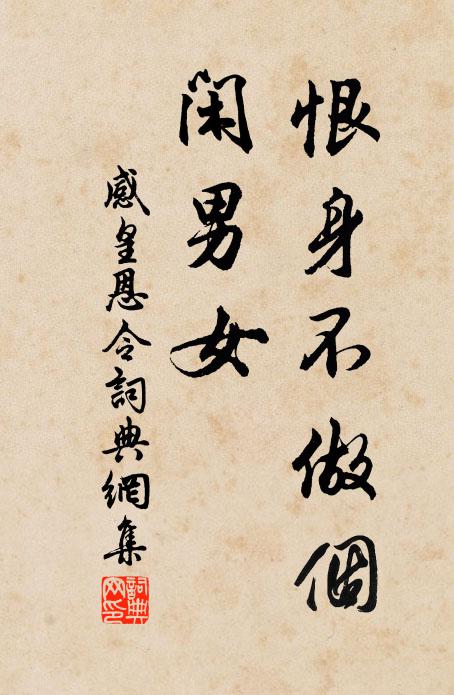 恨身不做個
閑男女
感皇恩令詞典網集
詞典
网印